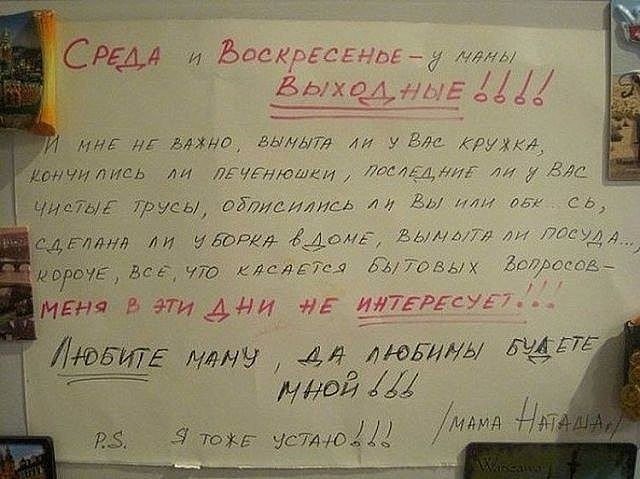 СРЕДА и ВОСКРЕСЕНЬЕ – у мамы
ВЫХОДНЫЕ!!!!
И МНЕ НЕ ВАЖНО, ВЫМЫТА ЛИ У ВАС КРУЖКА,
КОНЧИЛИСЬ ЛИ ПЕЧЕНЮШКИ, ПОСЛЕДНИЕ ЛИ У ВАС
ЧИСТЫЕ ТРУСЫ, ОБПИСИЛИСЬ ЛИ ВЫ ИЛИ ОБК...СЬ,
СДЕЛАНА ЛИ УБОРКА В ДОМЕ, ВЫМЫТА ЛИ ПОСУДА...,
КОРОЧЕ, ВСЕ, ЧТО КАСАЕТСЯ БЫТОВЫХ ВОПРОСОВ–
МЕНЯ В ЭТИ ДНИ НЕ ИНТЕРЕСУЕТ!!!
ЛЮБИТЕ МАМУ, ДА ЛЮБИМЫ БУДЕТЕ
МНОЙ!!!
P.S. Я ТОЖЕ УСТАЮ!!! /МАМА НАТАША/
Warszawa